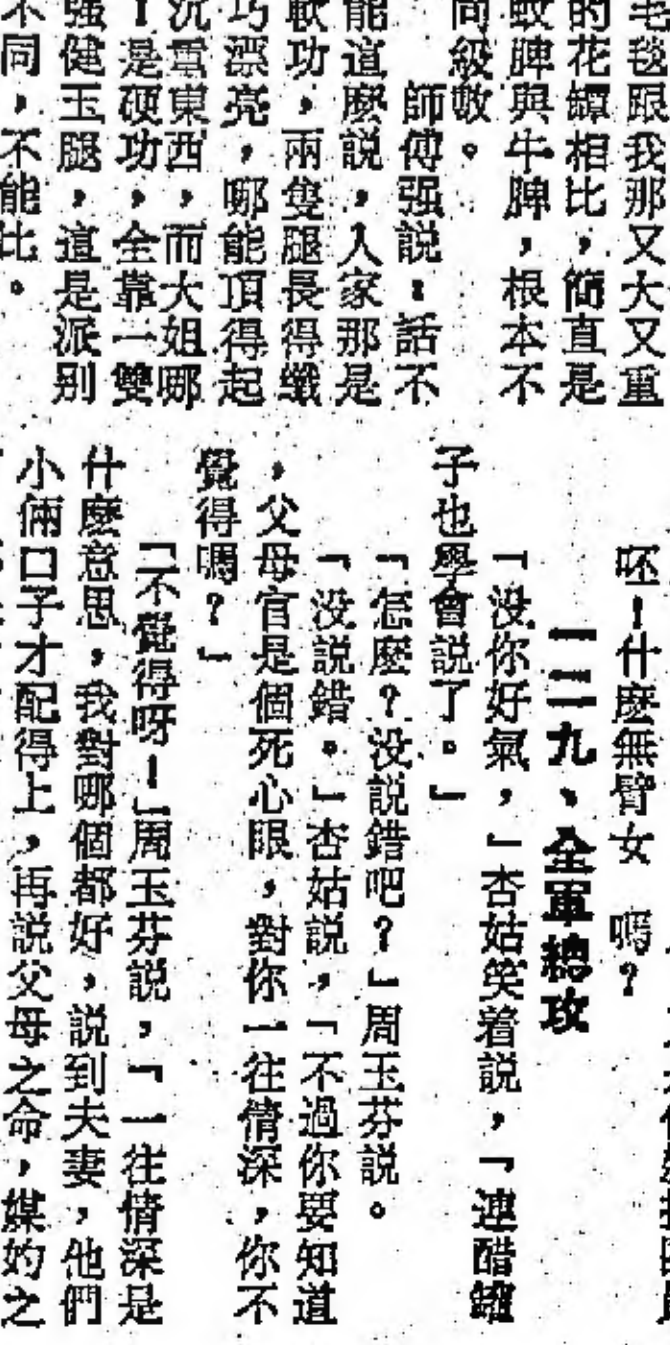 毛毯跟我那又大又重
的花罈相比，簡直是
蚊脾與牛脾，根本不
同級數。
師傅强説：話不
能這麽説，人家那是
軟功，兩隻腿長得纖
巧漂亮，哪能頂得起
沉重東西，而大姐哪
！是硬功，全靠一雙
强健玉腿，這是派别
不同，不能比。
呸！什麽無臂女
嗎？
一二九、全軍總攻
「没你好氣，」杏姑笑着説，「連醋罐
子也學會説了。」
「怎麽？没説錯吧？」周玉芬説。
「没説錯。」杏姑説，「不過你要知道
，父母官是個死心眼，對你一往情深，你不
覺得嗎？」
「不覺得呀！」周玉芬説，「一往情深是
什麽意思，我對哪個都好，説到夫妻，他們
小倆口子才配得上，再説父母之命，媒妁之